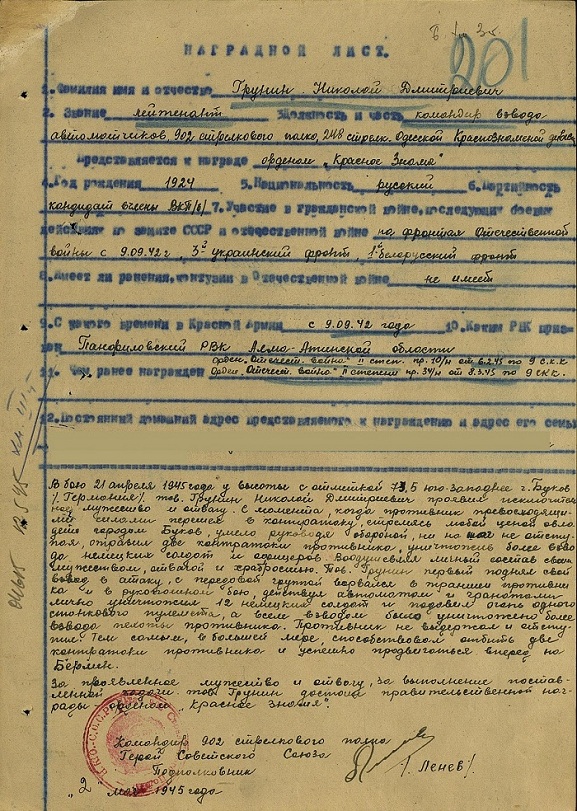 201
НАГРАДНОЙ ЛИСТ.
1. Фамилия имя и отчество Грунин Николай Дмитриевич
2. Звание лейтенант Должность и часть командир взвода
автоматчиков, 902 стрелкового полка, 248 стрелк. Одесской Краснознаменной дивиз.
Представляется к награде орденом „Красное Знамя"
4. Год рождения 1924 5. Национальность русский 6. Партийность
кандидат в члены ВКП/б/ 7. Участие в гражданской войне, последующих боевых
действиях по защите СССР и отечественной войне на фронтах Отечественной
войны с 9.09.42 г, 3й украинский фронт, 1й белорусский фронт
8. Имеет ли ранения, контузии в Отечественной войне не имеет
9. С какого времени в Красной Армии с 9.09.42 года 10. Каким РВК призван
Панфиловский РВК Алма-Атинской области
Орден „Отечест. война" II степ. пр. 10/н от 6.2.45 по 9 с.к.к
11. Чем ранее награжден Орден „Отечест. война" II степени пр. 34/н от 8.3.45 по 9 СКК.
12. Постоянный домашний адрес представляемого к награждению и адрес его семьи
В бою 21 апреля 1945 года у высоты с отметкой 73,5 юго-западнее г. Буков
/Германия/. тов. Грунин Николай Дмитриевич проявил исключитель
ное мужество и отвагу. С момента, когда противник превосходящи
ми силами перешел в контратаку, стремясь любой ценой овла
деть городом Буков, умело руководя обороной, ни на шаг не отсту
пая, отразил две контратаки противника, уничтожив более взво
да немецких солдат и офицеров. Воодушевляя личный состав своим
мужеством, отвагой и храбростью. Тов. Грунин первый поднял свой
взвод в атаку, с передовой группой ворвался в траншеи противни
ка и в рукопашном бою, действуя автоматом и гранатами
лично уничтожил 12 немецких солдат и подавил огонь одного
станкового пулемета, а всем взводом было уничтожено более
взвода пехоты противника. Противник не выдержал и отсту
пил. Тем самым, в большей мере, способствовал отбить две
контратаки противника и успешно продвигаться вперед на
Берлин.
За проявленное мужество и отвагу, за выполнение постав-
ленной задачи тов. Грунин достоин правительственной наг-
рады - орденом „Красное знамя".
Командир 902 стрелкового полка
Герой Советского Союза
Подполковник /Ленев/
„2" мая 1945 года